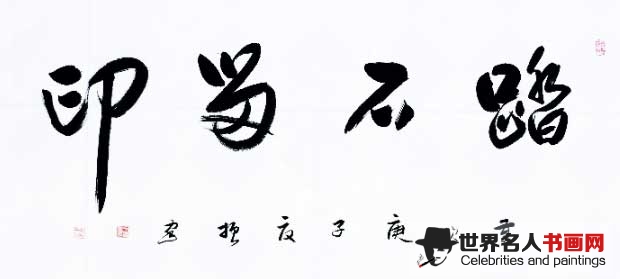 踏石留印
庚子夏振
世界名人书画网
Celebrities and paintings